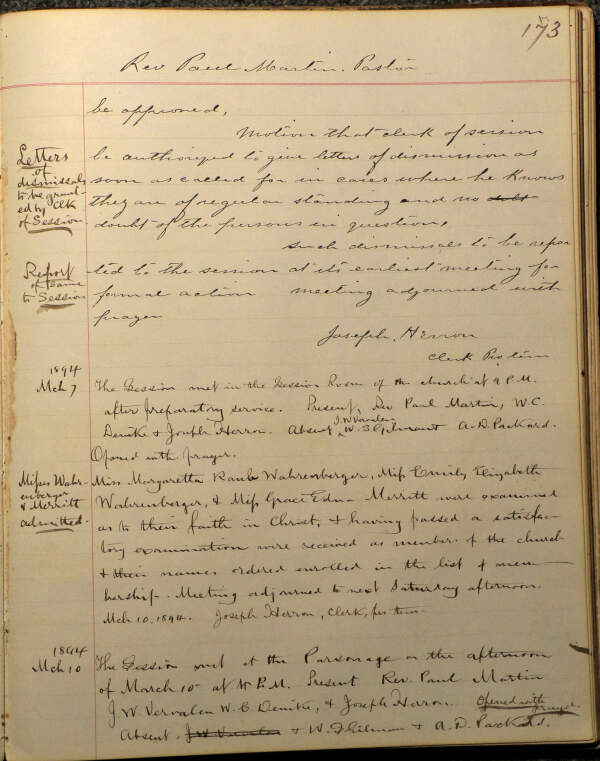 173
Rev Paul Martin. Pastor
be approved.
Motion that clerk of session
Letters
of
dismissals
to be grant
ed by Clk
of Session
be authorized to give letters of dismission as
soon as called for in cases where he knows
they are of regular standing and no dobt
doubt of the persons in question.
Such dismissals to be repor
Report
of same
to Session
ted to the session at its earliest meeting for
formal action meeting adjourned with
prayer
Joseph Herron
Clerk Protem
1894
Mch 7
The Session met in the Session Room of the church at 9 P.M.
after preparatory service. Present, Rev Paul Martin, W.C.
J.W Vervalen
Denike & Joseph Herron. Absent W. S. Gilman & A.D. Packard.
Opened with prayer.
Misses Wahr-
enberger
& Merritt
admitted.
Miss Margaretta Wahrenberger, Miss Emily Elizabeth
Wahrenberger, & Miss Grace Edna Merritt were examined
as to their faith in Christ, & having passed a satisfac-
tory examination were received as members of the church
& their names ordered enrolled in the list of mem-
bership. Meeting adjourned to next Saturday afternoon
Mch 10, 1894. Joseph Herron, Clerk, pro tem.
1894
Mch 10
The Session met at the Parsonage on the afternoon
of March 10 at P.M. Present Rev. Paul Martin
J W Vervalen W. C. Denike, & Joseph Herron. Opened with
prayer.
Absent. J W Vervalen & W. S Gilman & A. D. Packard.